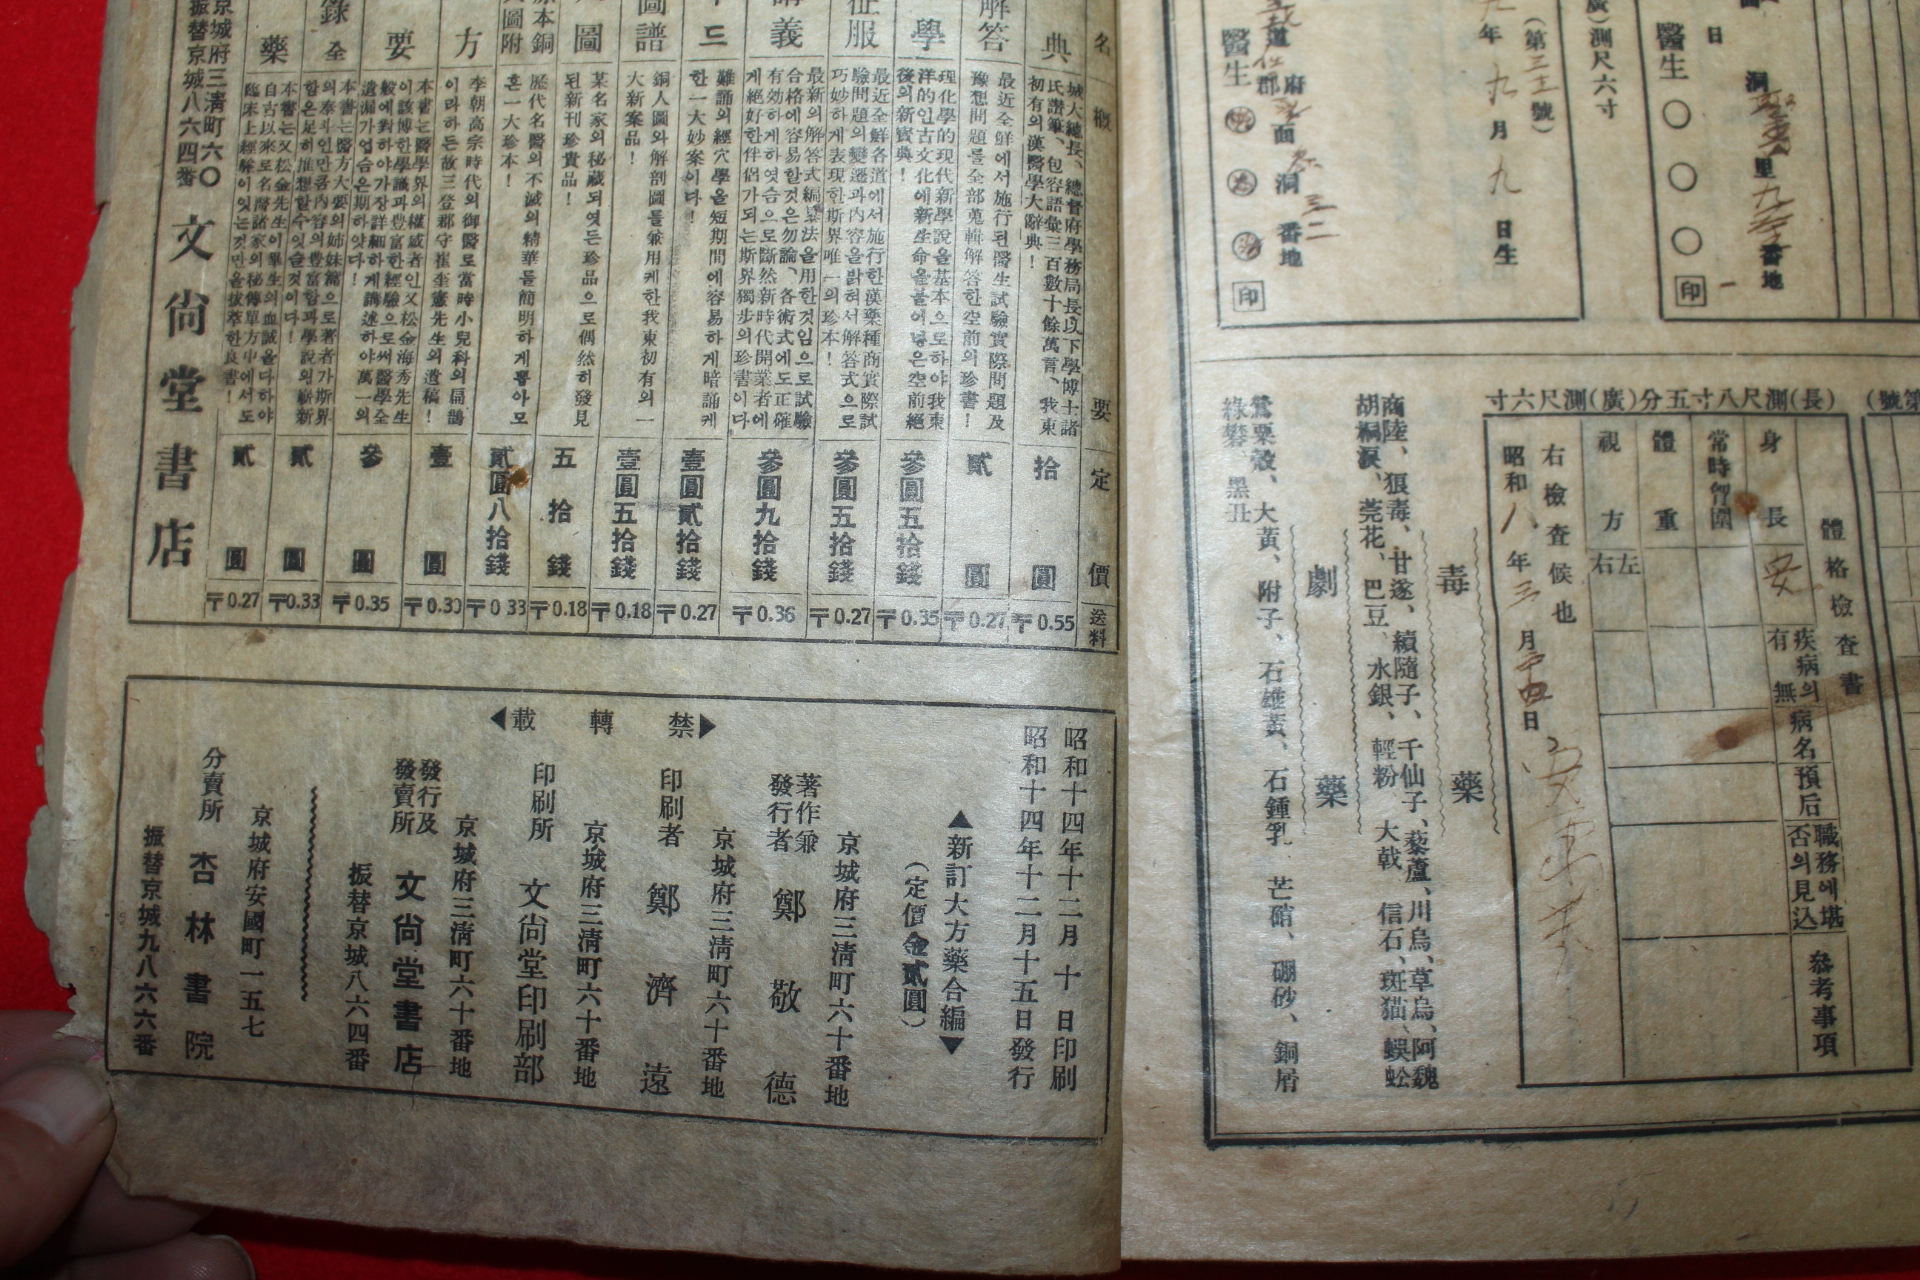 醫生
番地
印
日
洞
里
番地
醫生〇〇〇
印
(第三王號)
年九月九日生
道府
郡面洞番地
測尺六寸
(長)測尺八寸五分(廣)測尺六寸
體格檢查書
身長
常時胷圍
體重
視方
左
右
疾病의有無
病名
預后
職務에堪否의見込
參考事項
右檢查候也
昭和八年三月二十四日
毒藥
商陸、狼毒、甘遂、續隨子、千仙子、藜蘆、川烏、草烏、阿魏
胡桐淚、芫花、巴豆、水銀、輕粉、大戟、信石、斑猫、蜈蚣
劇藥
鶯粟殼、大黃、附子、石雄黃、石鍾乳、芒硝、硼砂、銅屑
綠礬、黑丑
名
概要
定價
送料
典
城大總長、總督府學務局長以下學博士諸
氏讚筆、包容語彙三百數十餘萬言、我東
初有의漢醫學大辭典!
拾圓
〒0.55
解答
最近全鮮에서施行된醫生試驗實際問題及
豫想問題를全部蒐輯解答한空前의珍書!
貳圓
〒0.27
學
理化學的現代新學說을基本으로하야我東
洋的인古文化에新生命을불어넣은空前絕
後의新寶典!
參圓五拾錢
〒0.35
征服
最近全鮮各道에서施行한漢藥種商實際試
驗問題의變遷과內容을밝혀서解答式으로
巧妙하게表現한斯界唯一의珍本!
參圓五拾錢
〒0.27
講義
最新의解答式編纂法을用한것임으로試驗
合格에容易할것은勿論、各術式에도正確
有効하게하엿슴으로斷然新時代開業者에
게絕好한伴侶가되는斯界獨步의珍書이다
參圓九拾錢
〒0.36
ード
難誦의經穴學을短期間에容易하게暗誦케
한一大妙案이다!
壹圓貳拾錢
〒0.27
圖譜
銅人圖와解剖圖를兼用케한我東初有의一
大新案品!
壹圓五拾錢
〒0.18
圖
某名家의秘藏되엿든珍品으로偶然히發見
된新刊珍貴品!
五拾錢
〒0.18
原本銅
圖附
歷代名醫의不滅의精華를簡明하게뽑아모
흔一大珍本!
貳圓八拾錢
〒0.33
方
李朝高宗時代의御醫로當時小兒科의扁鵲
이라하든故三登郡守崔奎憲先生의遺稿!
壹圓
〒0.30
要
本書는醫學界의權威者인又松金海秀先生
이該博한學識과豊富한經驗으로써醫學全
般에對하야가장詳細하게講述하야萬一의
遺漏가업슴은期하얏다!
參圓
〒0.35
錄 全
本書는醫方大要의姉妹篇으로著者가斯界
의泰斗인만큼內容의豊富함과學說의嶄新
함은足히推想할수잇슬것이다!
貳圓
〒0.33
藥
本書는又松金先生이畢生의血誠을다하야
自古以來로名醫諸家의秘傳單方中에서도
臨床上經驗이잇는것만을拔萃한良書!
貳圓
〒0.27
京城府三淸町六〇
振替京城八六四番
文尙堂書店
昭和十四年十二月 十 日印刷
昭和十四年十二月十五日發行
▲新訂大方藥合編▼
(定價金貳圓)
禁轉載
京城府三淸町六十番地
著作兼
發行者 鄭敬德
京城府三淸町六十番地
印刷者 鄭濟遠
京城府三淸町六十番地
印刷所 文尙堂印刷部
京城府三淸町六十番地
發行及
發賣所 文尙堂書店
振替京城八六四番
京城府安國町一五七
分賣所 杏林書院
振替京城九八六六番